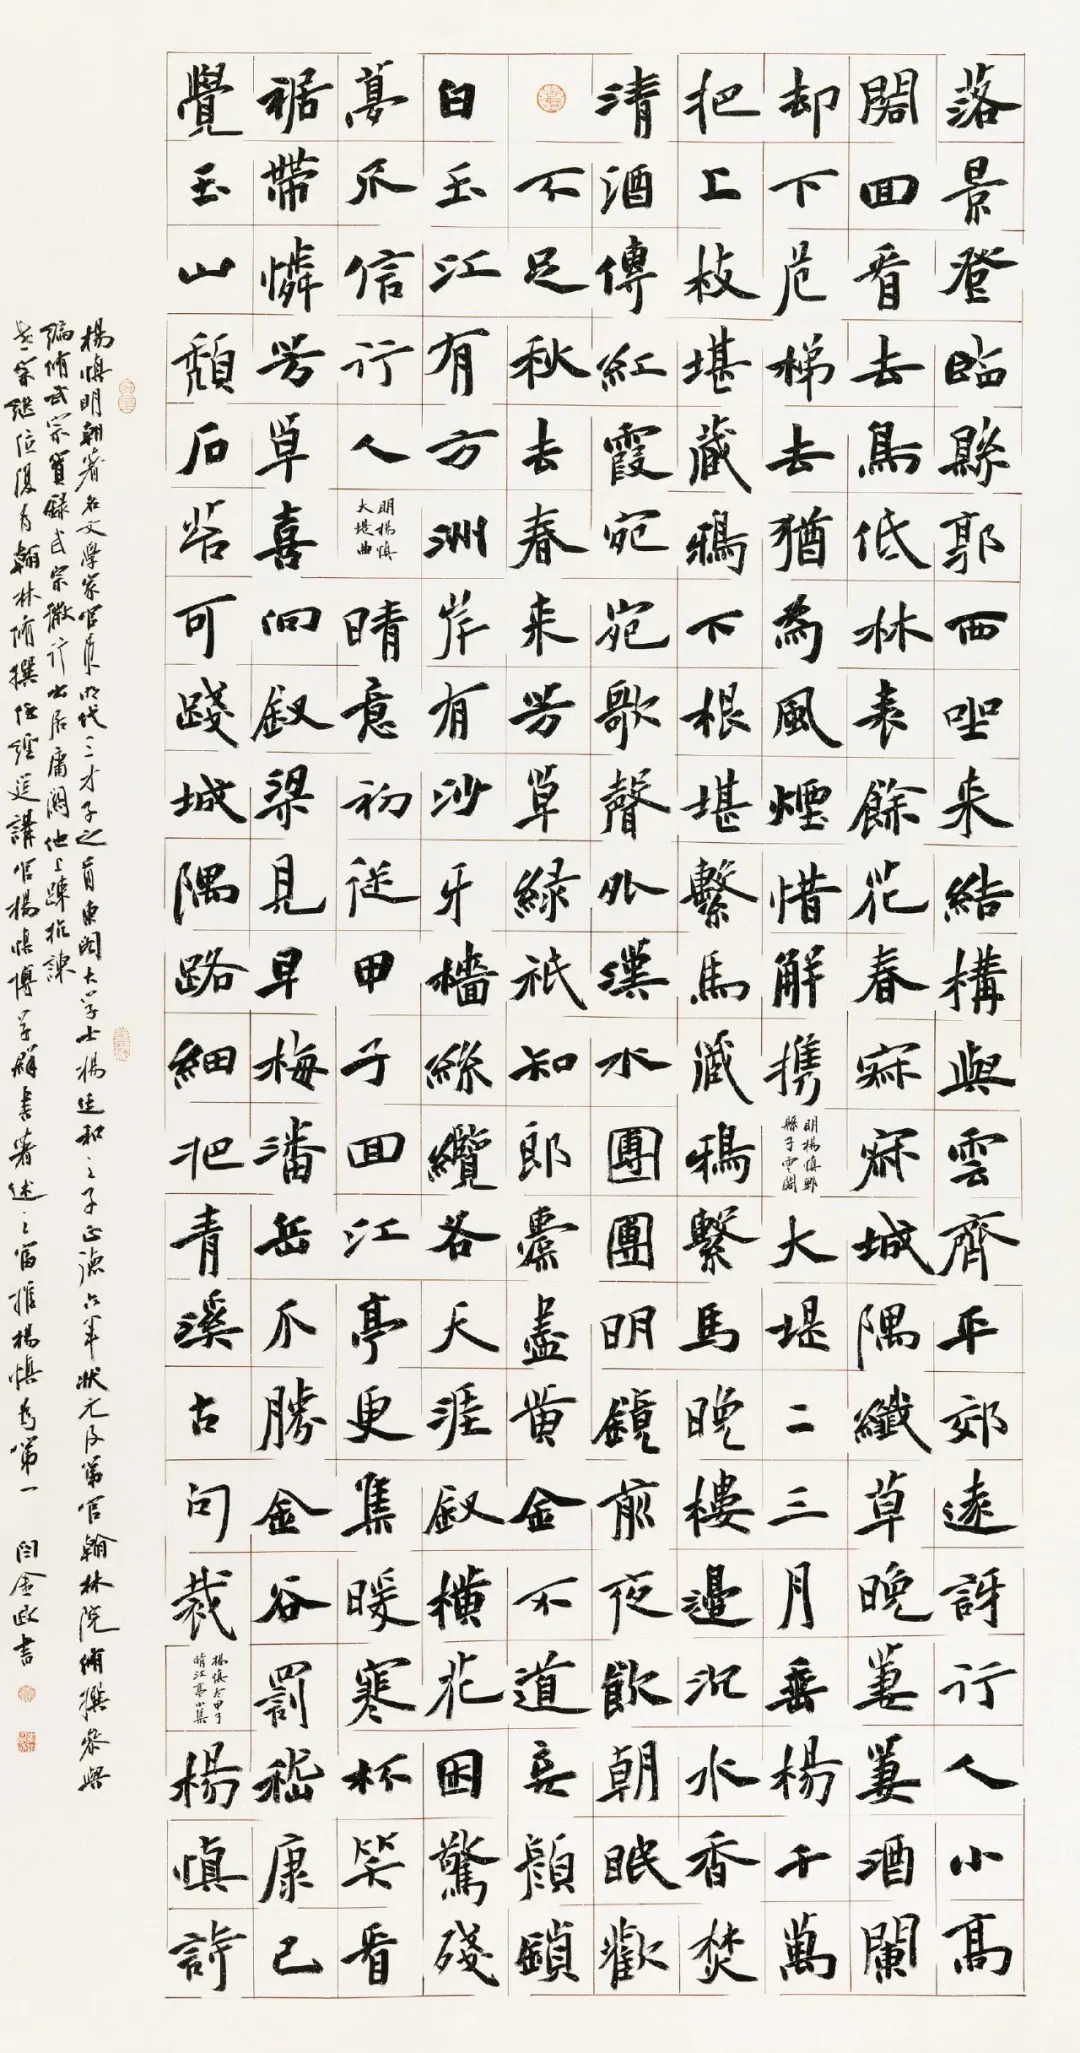 落景登臨縣郭西坐来結構與雲齊平郊遠訝行人小高
閣回看去鳥低林表餘花春寂寂城隅纖草晚萋萋酒闌
却下危梯去猶為風煙惜解攜
明楊慎郫
縣子雲閣
大堤二三月垂楊千萬
把上枝堪藏鴉下根堪繫馬藏鴉繫馬晚樓邊沉水香焚
清酒傳紅霞宛宛歌聲外漢水團團明鏡前夜飲朝眠歡
不足秋去春来芳草緑祇知郎橐盡黄金不道妾顔鎖
白玉江有方洲岸有沙牙檣絲纜各天涯釵横花困驚殘
夢不信行人
明楊慎
大堤曲
晴意初從甲子回江亭更集暖寒杯笑看
裾帶憐芳草喜向釵梁見早梅潘岳不勝金谷罰嵇康已
覺玉山頹石苔可踐城隅路細把青溪古句裁
楊慎冬甲子
晴江亭小集
楊慎詩
楊慎明朝著名文學家官員明代三才子之首東閣大学士楊廷和之子正德六年狀元及第官翰林院脩撰參與
編脩武宗實録武宗微行出居庸關他上疎抗諫
世宗继位復為翰林脩撰任經筵講官楊慎博学群書著述之富推楊慎為第一 闫金政書